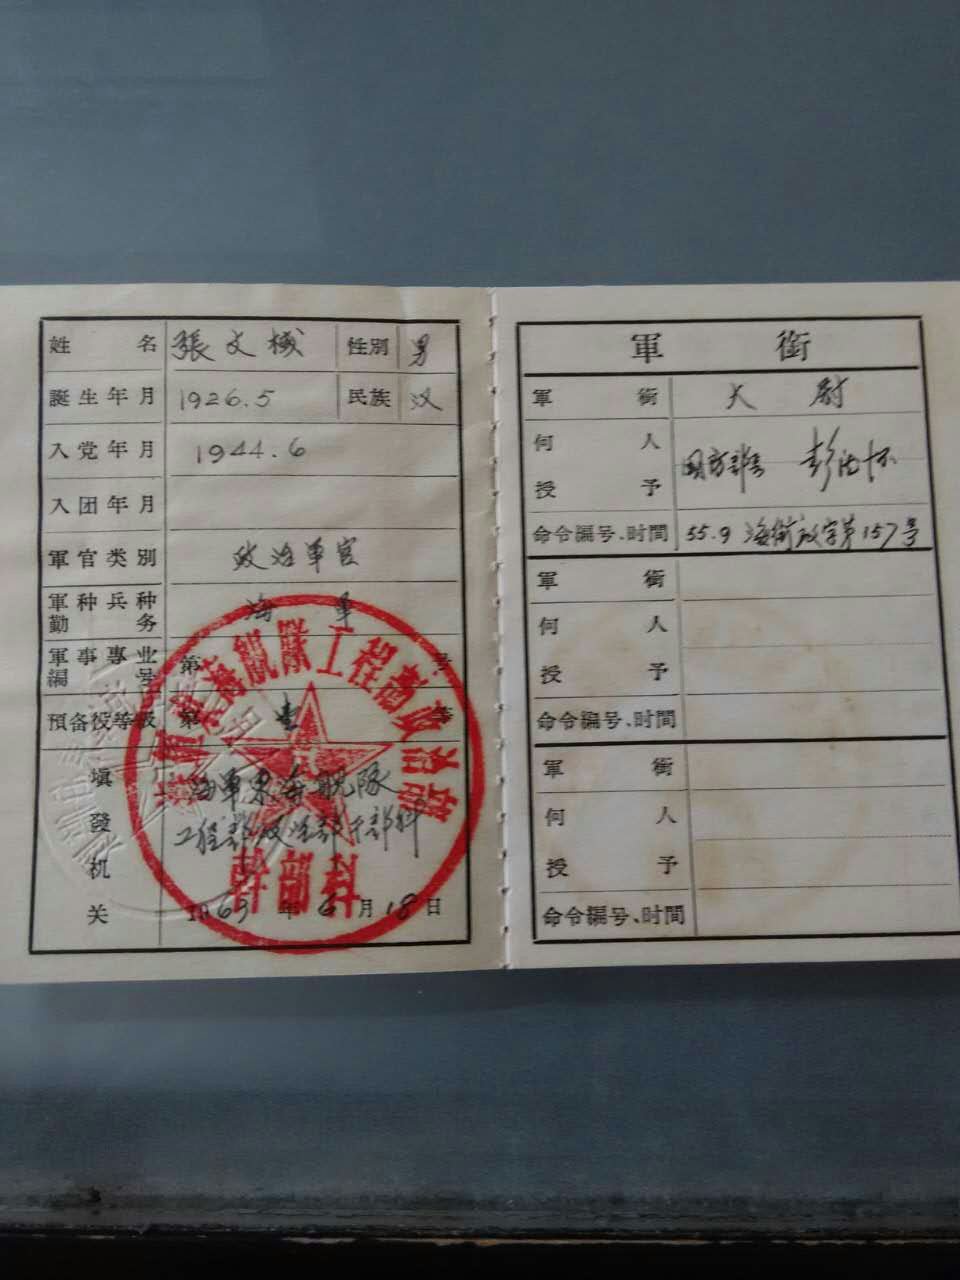 姓名 張文棫 性別 男
誕生年月 1926.5 民族 汉
入党年月 1944.6
入团年月
軍官类別 政治軍官
軍种兵种 海軍
勤务
軍事專业 第 号
編号
預备役等級 第 壹 等
填發机关
海軍東海舰隊
工程部政治部干部科
1963年6月18日
海軍東海舰隊工程部政治部
幹部科
軍銜
軍銜 大尉
何人 国防部長 彭德怀
授予
命令編号、时間 55.9 海銜政字第157号
軍銜
何人
授予
命令編号、时間
軍銜
何人
授予
命令編号、时間